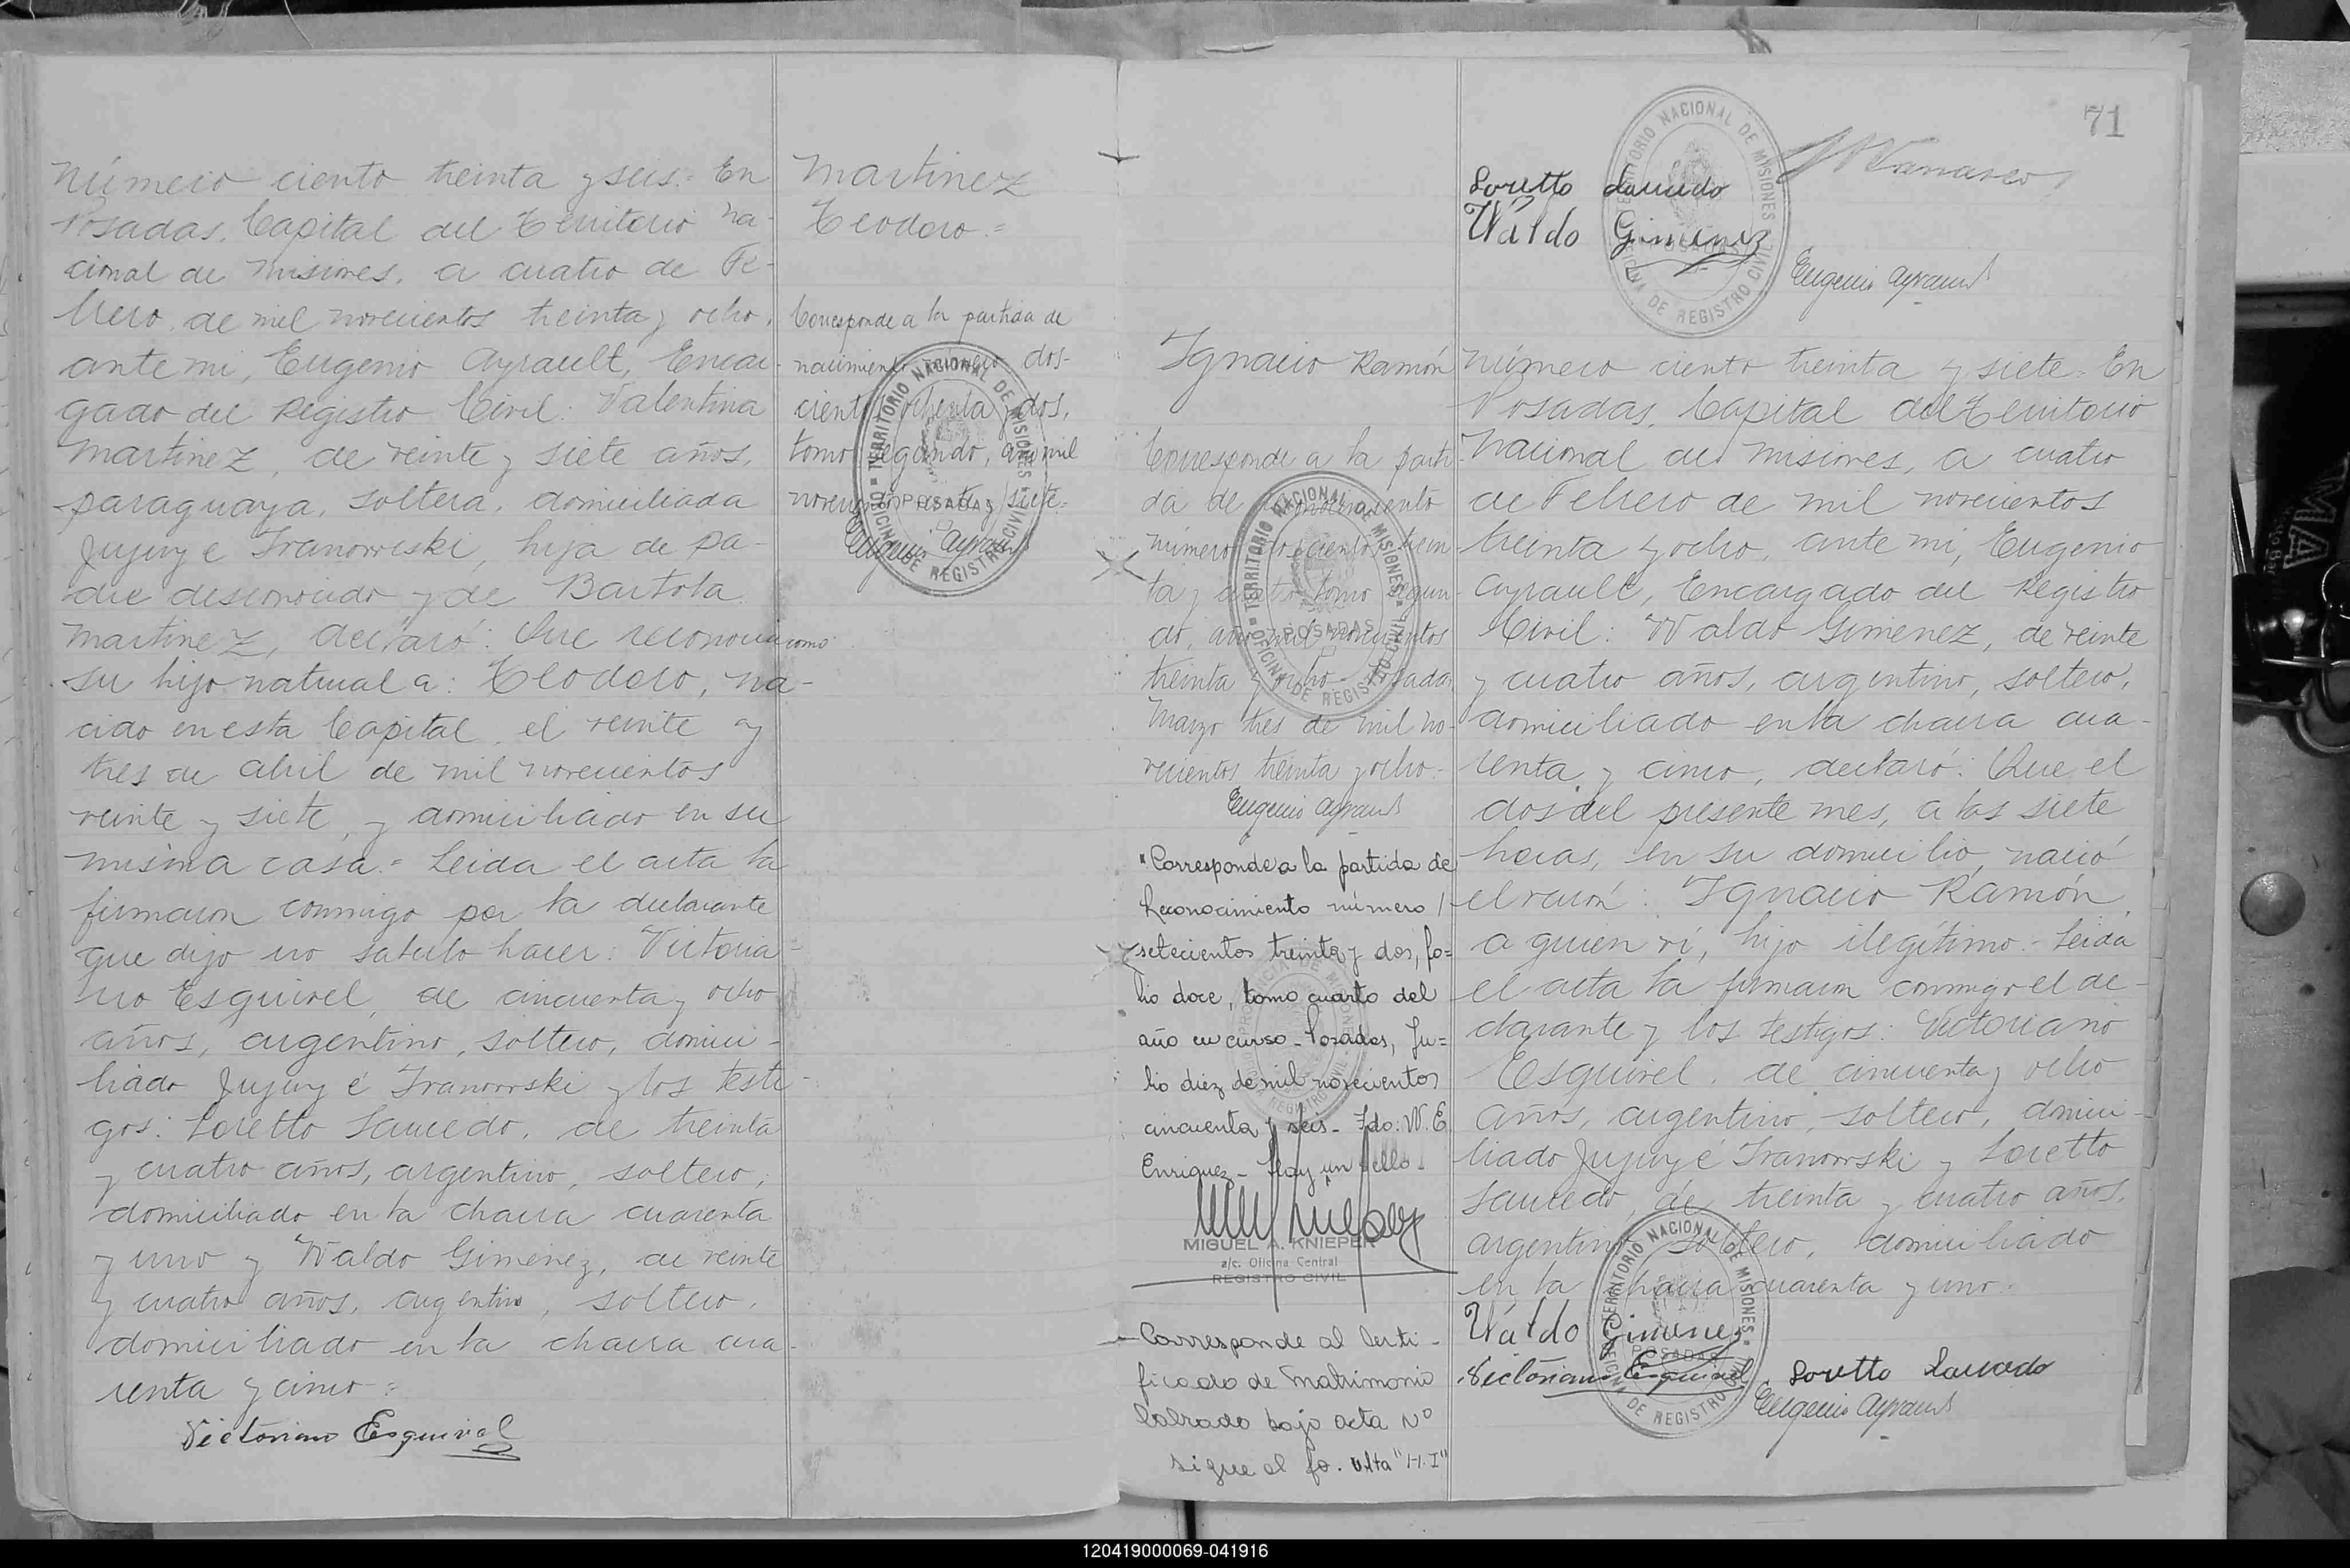 Número ciento treinta y seis. = En
Posadas, Capital del Territorio Na-
cional de Misiones, a cuatro de Fe-
brero de mil novecientos treinta y ocho,
ante mi, Eugenio Ayrault, Encar-
gado del Registro Civil: Valentina
Martinez, de veinte y siete años,
paraguaya, soltera, domiciliada
Jujuy é Iranowiski, hija de pa-
dre desconocido y de Bartola
Martinez, declaró: Que reconocia como
su hijo natural a: Teodoro, na-
cido en esta Capital, el veinte y
tres de Abril de mil novecientos
veinte y siete, y domiciliado en su
misma casa. = Leida el acta la
firmaron conmigo por la declarante
que dijo no saberlo hacer: Victoria-
no Esquivel, de cincuenta y ocho
años, argentino, soltero, domici-
liado Jujuy é Iranowski y los testi-
gos: Loretto Saucedo, de treinta
y cuatro años, argentino, soltero,
domiciliado en la chacra cuarenta
y uno y Waldo Gimenez, de veinte
y cuatro años, argentino, soltero,
domiciliado en la chacra cua-
renta y cinco =
Victoriano Esquivel
Martinez
Teodoro. =
Corresponde a la partida de
nacimiento número dos-
cientos ochenta y dos,
tomo segundo, año mil
novecientos y siete =
Eugenio Ayrault
TERRITORIO NACIONAL DE MISIONES
POSADAS
OFICINA DE REGISTRO CIVIL
71
Loretto Saucedo
Waldo Gimenez
Eugenio Ayrault
TERRITORIO NACIONAL DE MISIONES
POSADAS
OFICINA DE REGISTRO CIVIL
Ignacio Ramón
Corresponde a la parti-
da de reconocimiento
número doscientos trein-
ta y cuatro tomo segun-
do, año mil novecientos
treinta y ocho - Posadas
Marzo tres de mil no-
vecientos treinta y ocho. =
Eugenio Ayrault
TERRITORIO NACIONAL DE MISIONES
POSADAS
OFICINA DE REGISTRO CIVIL
"Corresponde a la partida de
Reconocimiento número /
setecientos treinta y dos, fo=
lio doce, tomo cuarto del
año en curso - Posadas, Ju=
lio diez de mil novecientos
cincuenta y seis - Fdo: W. E.
Enriquez - Hay un sello
MIGUEL A. KNIEPER
a/c. Oficina Central
REGISTRO CIVIL
Corresponde al Certi-
ficado de Matrimonio
labrado bajo acta Nº
sigue al fo. Vlta "H.I"
Número ciento treinta y siete = En
Posadas, Capital del Territorio
Nacional de Misiones, a cuatro
de Febrero de mil novecientos
treinta y ocho, ante mi, Eugenio
Ayrault, Encargado del Registro
Civil: Waldo Gimenez, de veinte
y cuatro años, argentino, soltero,
domiciliado en la chacra cua-
renta y cinco, declaró: Que el
dos del presente mes, a las siete
horas, en su domicilio, nació
el varón: Ignacio Ramón,
a quien vi, hijo ilegítimo. - Leida
el acta la firmaron conmigo el de-
clarante y los testigos: Victoriano
Esquivel, de cincuenta y ocho
años, argentino, soltero, domici-
liado Jujuy é Iranowski y Loretto
Saucedo, de treinta y cuatro años,
argentino, soltero, domiciliado
en la chacra cuarenta y uno. -
Waldo Gimenez
Victoriano Esquivel Loretto Saucedo
Eugenio Ayrault
TERRITORIO NACIONAL DE MISIONES
POSADAS
OFICINA DE REGISTRO CIVIL
120419000069-041916